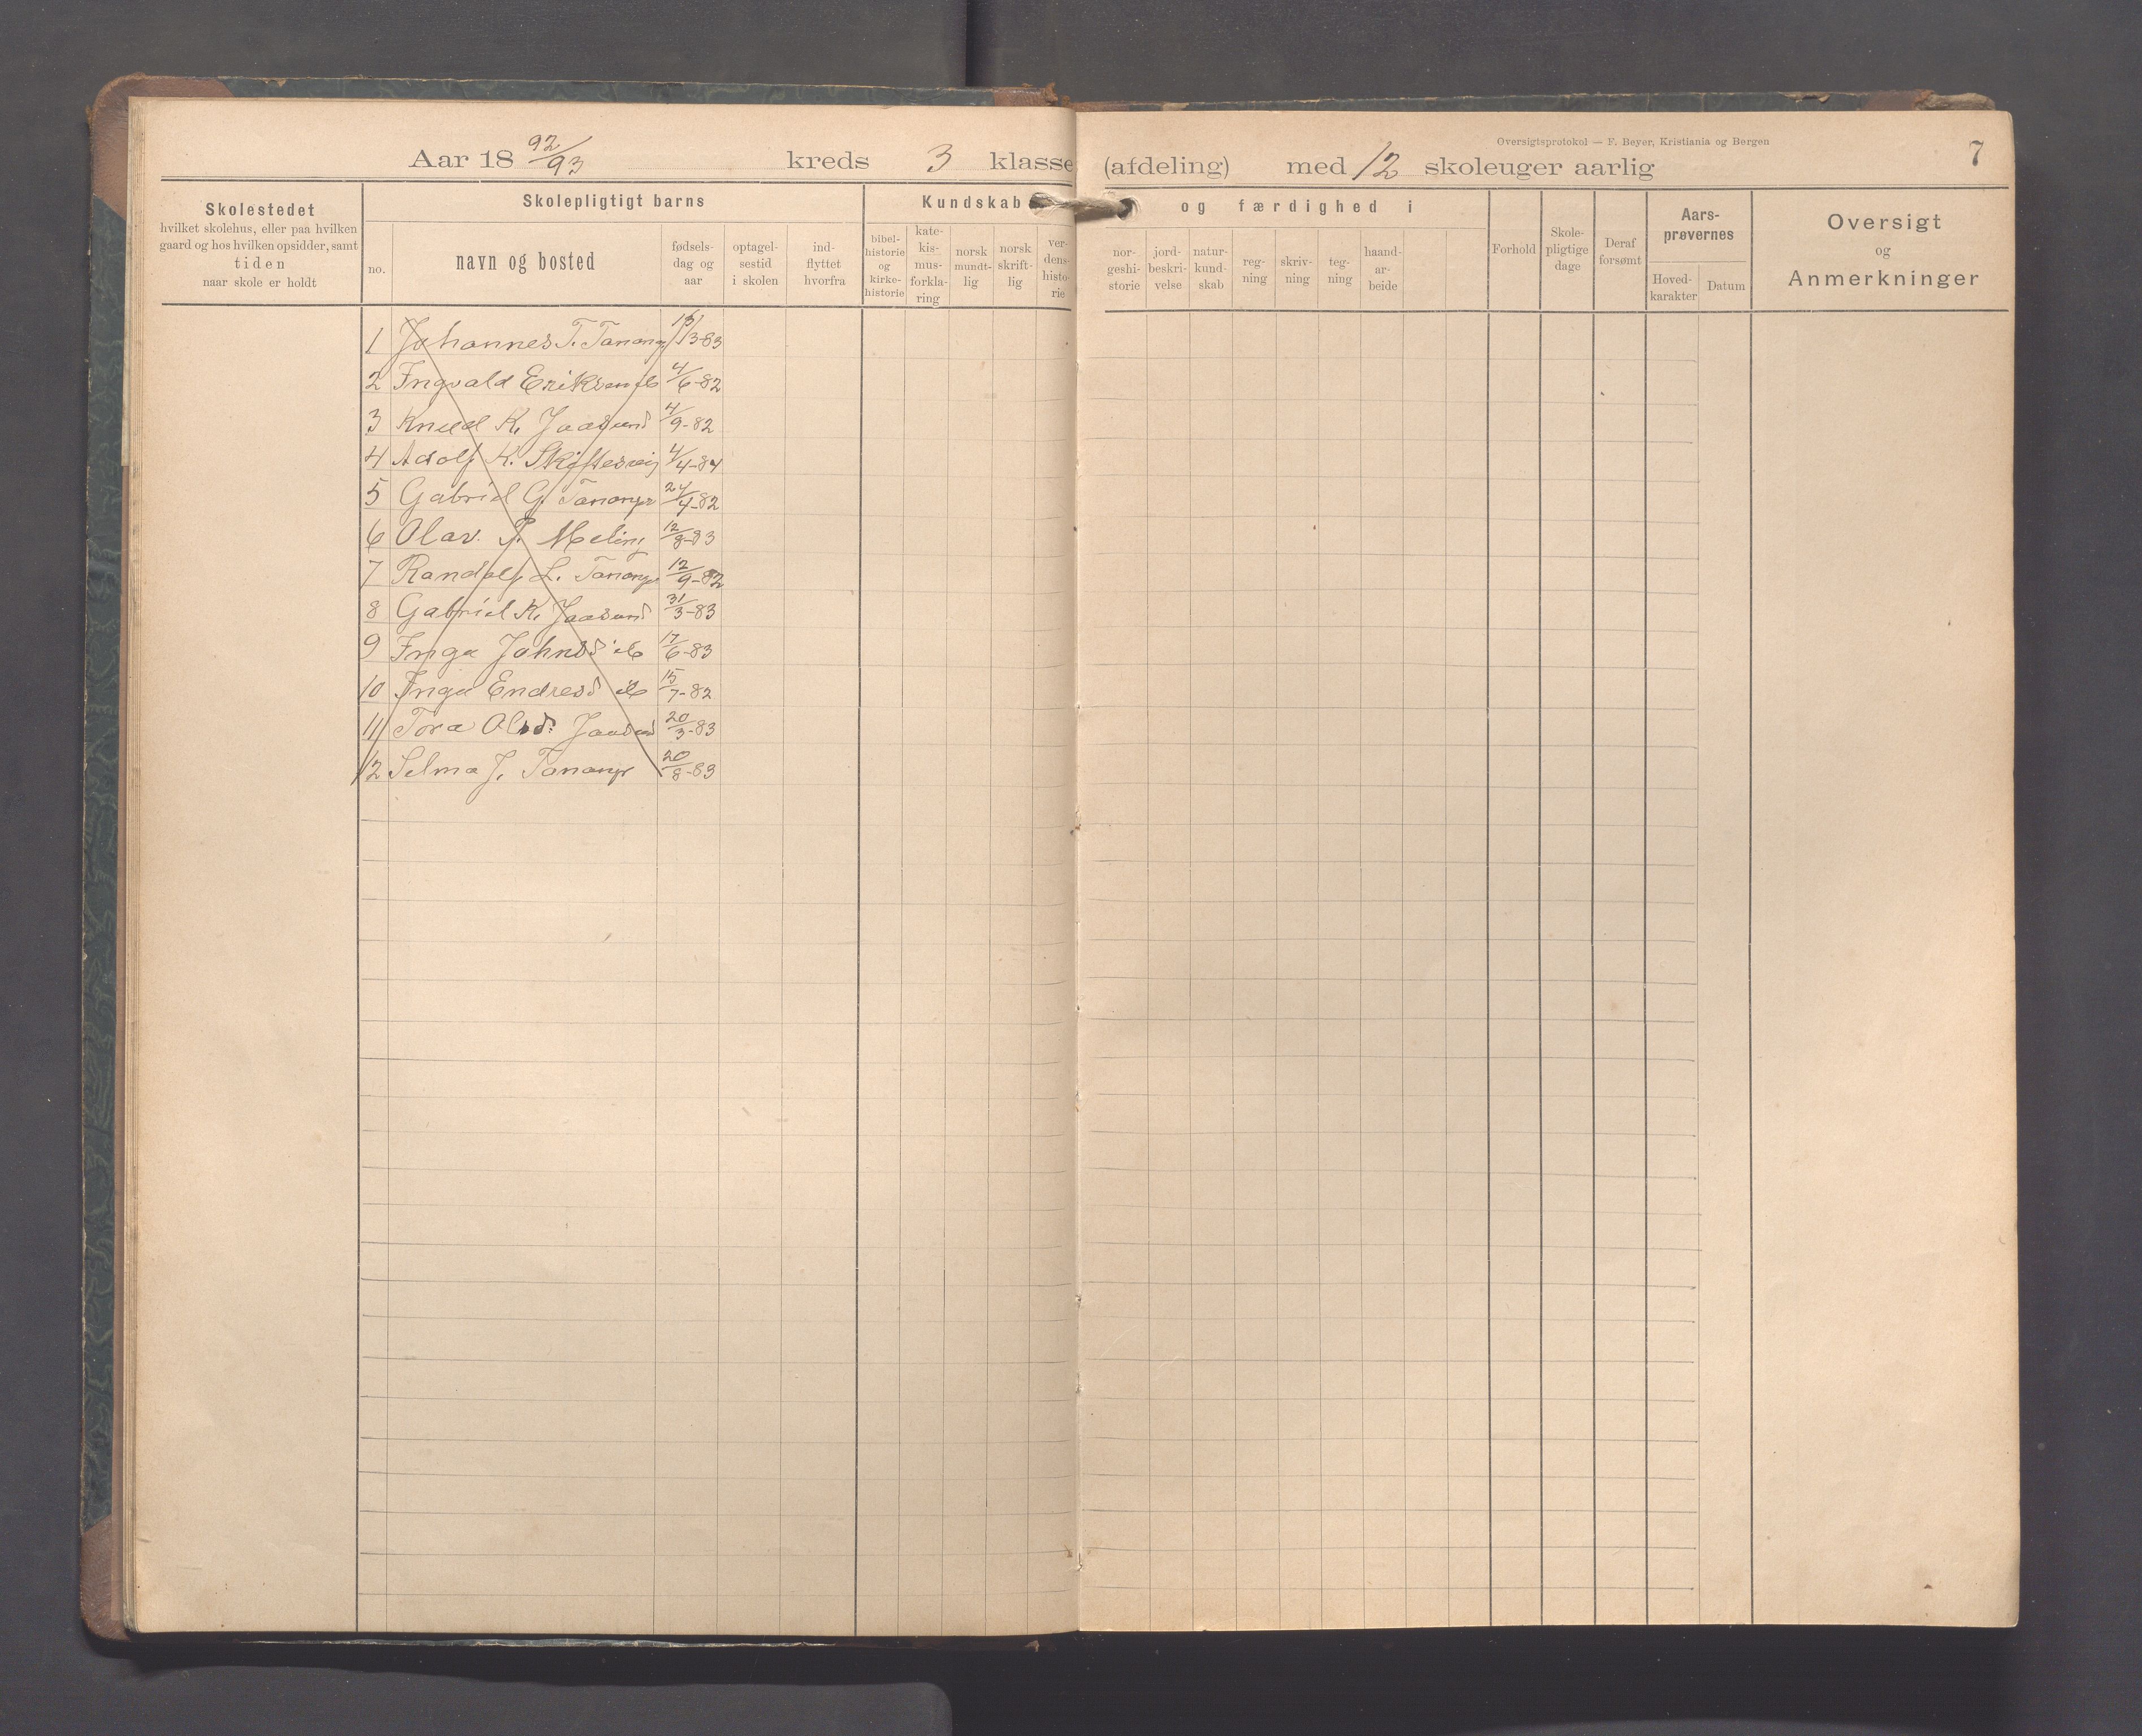 Oversigtsprotokol — F. Beyer, Kristiania og Bergen
7
Aar 18 92/93 kreds 3 klasse (afdeling) med 12 skoleuger aarlig
Skolestedet
hvilket skolehus, eller paa hvilken
gaard og hos hvilken opsidder, samt
tiden
naar skole er holdt
Skolepligtigt barns
no.
navn og bosted
fødsels-
dag og
aar
optagel-
sestid
i skolen
ind-
flyttet
hvorfra
Kundskab og færdighed i
bibel-
historie
og
kirke-
historie
kate-
kis-
mus-
forkla-
ring
norsk
mundt-
lig
norsk
skrift-
lig
ver-
dens-
histo-
rie
nor-
geshi-
storie
jord-
beskri-
velse
natur-
kund-
skab
reg-
ning
skriv-
ning
teg-
ning
haand-
ar-
beide
Forhold
Skole-
pligtige
dage
Deraf
forsømt
Aars-
prøvernes
Hoved-
karakter
Datum
Oversigt
og
Anmerkninger
1 Johannes T. Tananger /3-83
2 Ingvald Eriksen 4/6-82
3 Knud K. Jaasund 4/9-82
4 Adolf K. 4/4-84
5 Gabriel G. Tananger 24/4-82
6 Olav P. Meling 12/8-83
7 Randolf L. Tananger 12/9-82
8 Gabriel K. Jaasund 31/3-83
9 Inga Johnsd 17/6-83
10 Inga Endresd 15/7-82
11 Tora Olsd. Jaasund 20/3-83
12 Selma J. Tananger 20/8-83